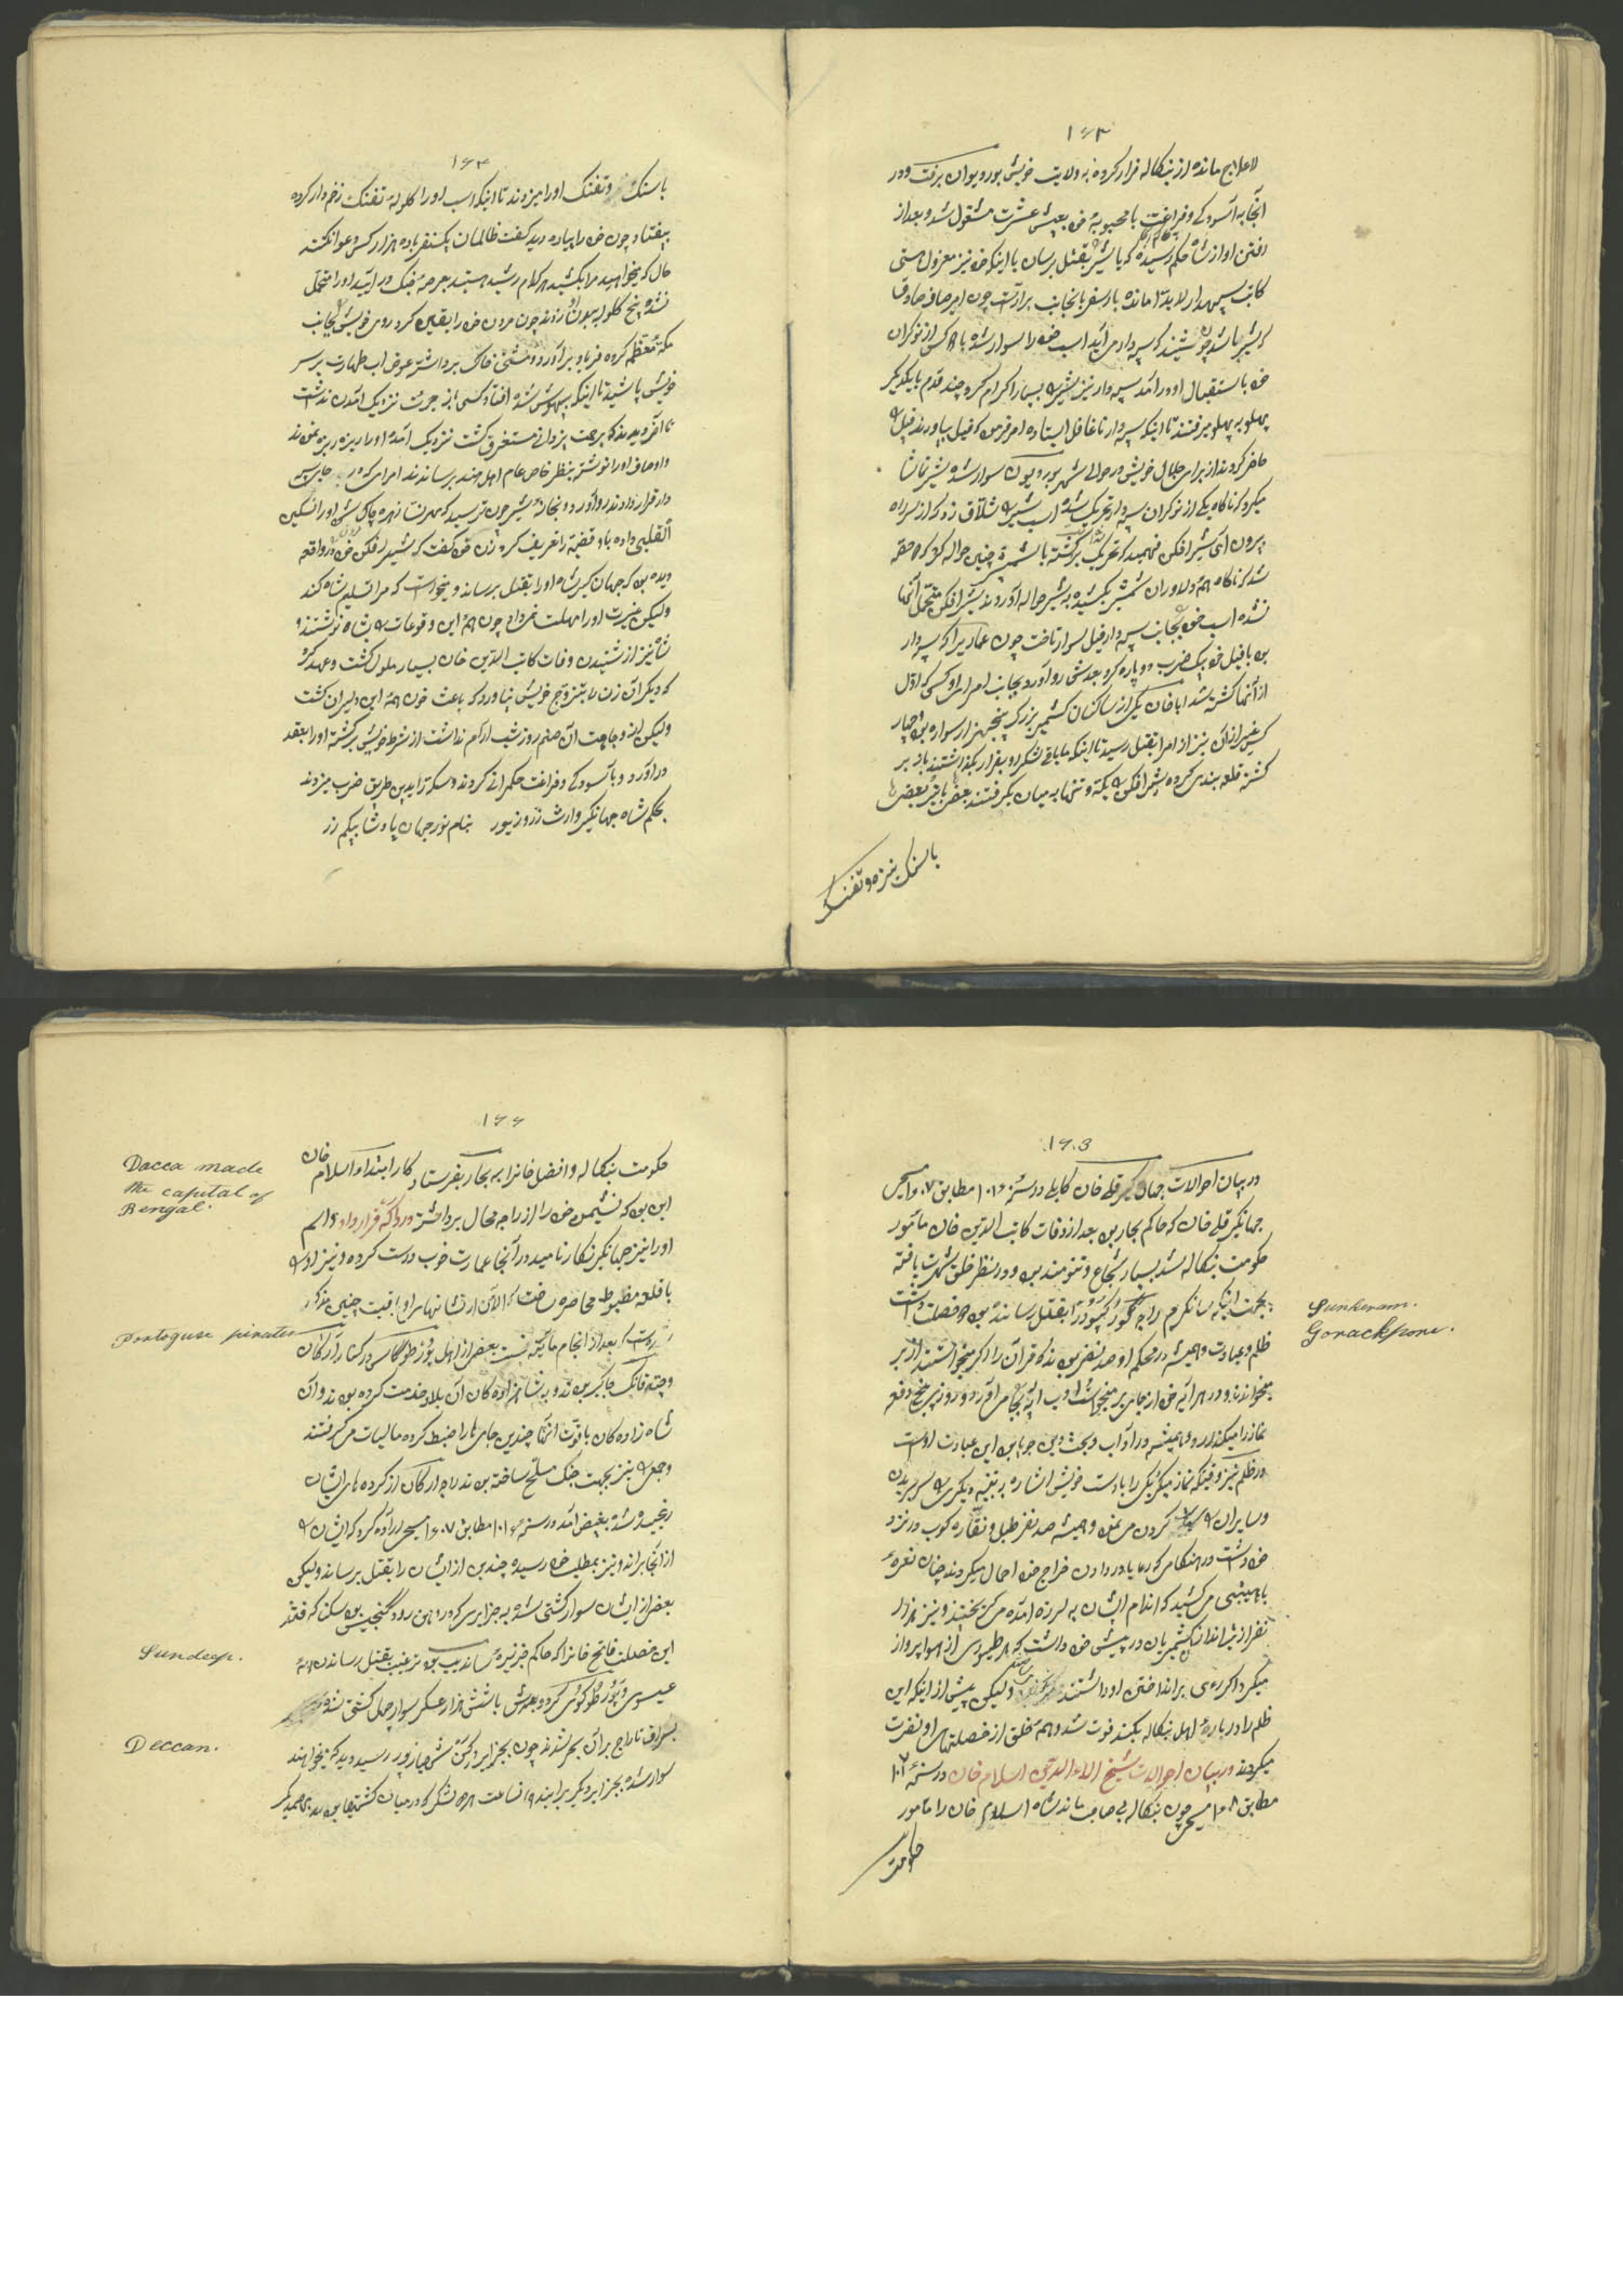 ۱۶۳
لاعلاج مانده از بنکاله فرار کرده به ولایت خویش بوردیوان برفت ودر
انجا به آسودکی وفراغت با محبوبهٔ خود بعیش عشرت مشغول شد وبعد از
رفتن او از شاه حکم رسیده که یا شیر را بقتل برسان یا اینکه خود نیز معزول هستی
کاتب سپهدار لابداً مانده بار سفر بانجانب برآراست چون
خود باستقبال او درآمد سپه دار نیز شیر را بسیار اکرام کرد چند قدم با یکدیکر
پهلو به پهلو میرفتند تا اینکه سپه دار ناغافل ایستاده امر فرمود که فیل بیاورند فیل را
حاضر کردند از برای جلال خویش در حوالی شهر بوردیوان سوار شد شیر تماشا
میکرد که ناکاه یکی از نوکران سپه دار نزدیک شده اسب شیر را شلاق زد که از سر راه
بیرون آی شیر افکن فهمید که
شد که ناکاه همهٔ دلاوران شمشیر بکشیده به شیر حواله آوردند شیر افکن متحمل آنها
نشده اسب خود بجانب سپه دار فیل سوار تاخت چون عماری را که سپه دار
بود با فیل خود بیک ضرب دو پاره کرد بعدش رو آورد بجانب امرای او کسی که اول
از آنها کشته شد ابا خان یکی از ساکنان کشمیر بزرک پنجهزار سواره بود چهار
کس غیر از آن نیز از امرا بقتل رسید تا اینکه مابقی لشکر رو بفرار بکذاشتند باز بر
کشته قلعه بندی کرده شیر افکن را یکه وتنها به میان بکرفتند بعض با تیر بعض
با سنک نیزه وتفنک
۱۶۴
با سنک وتفنک اورا میزدند تا اینکه اسب اورا کلولهٔ تفنک زخم دار کرده
بیفتاد چون خود را پیاده دید کفت ظالمان یکنفر با ده هزار کس دعوا نکند
حال که میخواهید مرا بکشید هر کدام رشید هستید بعرصهٔ جنک درآیید اورا متحمل
نشده پنج کلوله به بدن او زدند چون مردن خود را یقین کرد روی خویش بجانب
مکهٔ معظمه کرده فریاد برآورد ومشتی خاک برداشته عوض آب طهارت بر سر
خویش پاشید تا اینکه بیهوش شده افتاد کسی از جرئت نزدیک آمدن نداشت
تا آخر دیدند که برحمت یزدانی مستغرق کشت نزدیک آمده اورا ریزه ریزه نمودند
واوصاف اورا نوشته بنظر خاص عام اهل هند برساندند امرای که در جای سپه
دار قرار دادند رو آورد بخانهٔ شیر چون ترسید که مهرنسا زهره چاک شود اورا تسکین
القلبی داده باو قضیه را تعریف کرد زن خود کفت که شیر افکن خود در واقعه
دیده بود که جهانکیر شاه اورا بقتل برساند ومیخواست که مرا تسلیم شاه کند
ولیکن غیرت اورا مهلت نمیداد چون همهٔ این وقوعات را بشاه نوشتند
شاه نیز از شنیدن وفات کاتب الدین خان بسیار ملول کشت وعهد کرد
که دیکر آن زن را بتزویج خویش نیاورد که باعث خون همهٔ این دلیران کشت
ولیکن از وجاهت آن صنم روز شب آرام نداشت از شرط خویش برکشته اورا بعقد
درآورد وبا آسودکی وفراغت حکمرانی کردند وسکه را بدین طریق ضرب میزدند
بحکم شاه جهانکیر وارث زر وزیور بنام نور جهان پادشا بیکم زر
۱۶۵
در بیان احوالات جهانکیر قلی خان کابلی در سنهٔ ۱۰۱۶ مطابق ۱۶۰۷ مسیحی
جهانکیر قلی خان که حاکم بهار بود بعد از وفات کاتب الدین خان مأمور
حکومت بنکاله شد بسیار شجاع وتنومند بود ودر نظر خلق شهرت یافته
بجهت اینکه سانکرم راجهٔ کورکپور را بقتل رسانیده بود دو خصلت داشت
ظلم وعبادت وهمیشه در محکمهٔ او صد نفر بودند که قرآن را اکر میخواستند از بر
نماز را میکذارد وهمیشه در آداب وبحث دین جویا بود این عبادت اوست
در ظلم نیز وقتیکه نماز میکرد یکی را با دست خویش اشاره به تنبیه دیکری را سر بریدن
وسایران را کردن می نمود وهمیشه صد نفر طبل ونقاره کوب در نزد
خود داشت در هنکامی که رعایا در دادن خراج خود اهمال میکردند چنان نعرهٔ
با هیبتی می کشید که اندام ایشان به لرزه آمده می کریختند ونیز هزار
نفر از تیراندازان کشمیریان در پیش خود داشت که هر طیوری از هوا پرواز
میکرد اکر امری بر انداختن او داشتند ولیکن پیش از اینکه این
ظلم را در بارهٔ اهل بنکاله بکند فوت شد وهمهٔ خلق از خصلتهای او نفرت
میکردند در بیان احوالات شیخ الاء الدین اسلام خان در سنهٔ ۱۰۱۷
مطابق ۱۶۰۸ مسیحی چون بنکاله بی صاحب ماند شاه اسلام خان را مأمور
حکومت
Sunkeram.
Gorackpore.
۱۶۶
حکومت بنکاله وافضل خانرا به بهار بفرستاد کار ابتدا او اسلام خان
این بود که نشیمن خود را از راجه محال برداشته در داکه قرار داد واسم
اورا نیز جهانکیر نکار نامید در آنجا عمارت خوب درست کرده ونیز او را
با قلعه مظبوط محاصره ساخت که الآن از نشانهای او باقیست چنین مذکور
است که بعد از انجام مأة بیست بعض از اهل پورطوکاسی در کنار آرکان
وچته قانک جاکیر بودند وبه شاهزاده کان آن بلاد خدمت کرده بودند وآن
شاه زاده کان با قوت آنها چندین جای را ضبط کرده مالیات می کرفتند
وجمعی را نیز بجهت جنک مسلح ساخته بودند راجهٔ ارکان از کرده های ایشان
رنجیده شده بغیض آمد در سنهٔ ۱۰۱۶ مطابق ۱۶۰۷ مسیحی اراده کرد که ایشان را
از آنجا براند ونیز بمطلب خود رسیده چندین از ایشان را بقتل برساند ولیکن
بعض از ایشان سوار کشتی شده به جزایری که در دهن رود کنجیس بود سکنا کرفتند
این خصلت فاتح خانرا که حاکم جزیرهٔ ساندیب بود ترغیب بقتل رساندن همهٔ
عیسوی وپورطوکوئی کرد وبعدش با شش هزار عسکر سوار چهل کشتی شده
بسراق تاراج بر آن بحر شدند چون بجزایر دکن شهباز پور رسید دید که میخواهند
سوار شده بجزایر دیکر برآیند
Dacca made
the capital of
Bengal.
Portoguse pirates
Sundeep.
Deccan.